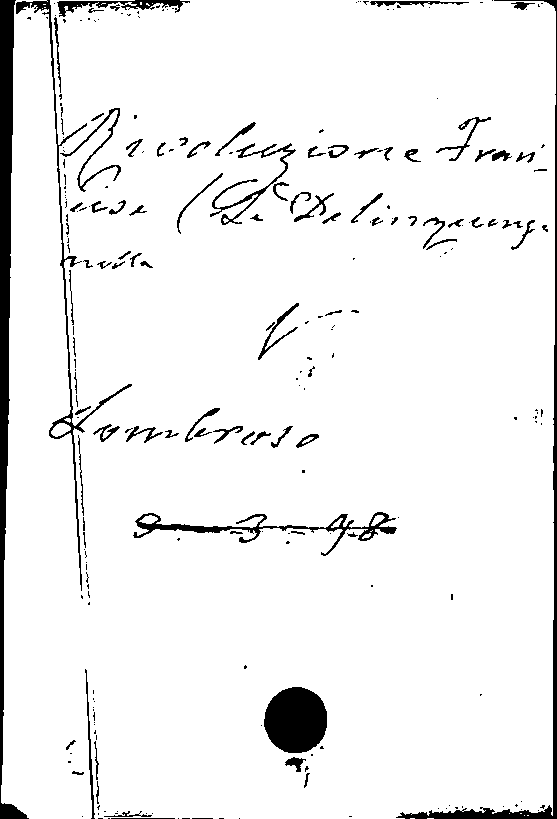 Rivoluzione Fran-
cese (La Delinquenza
nella
V
Lombroso
9 3 98